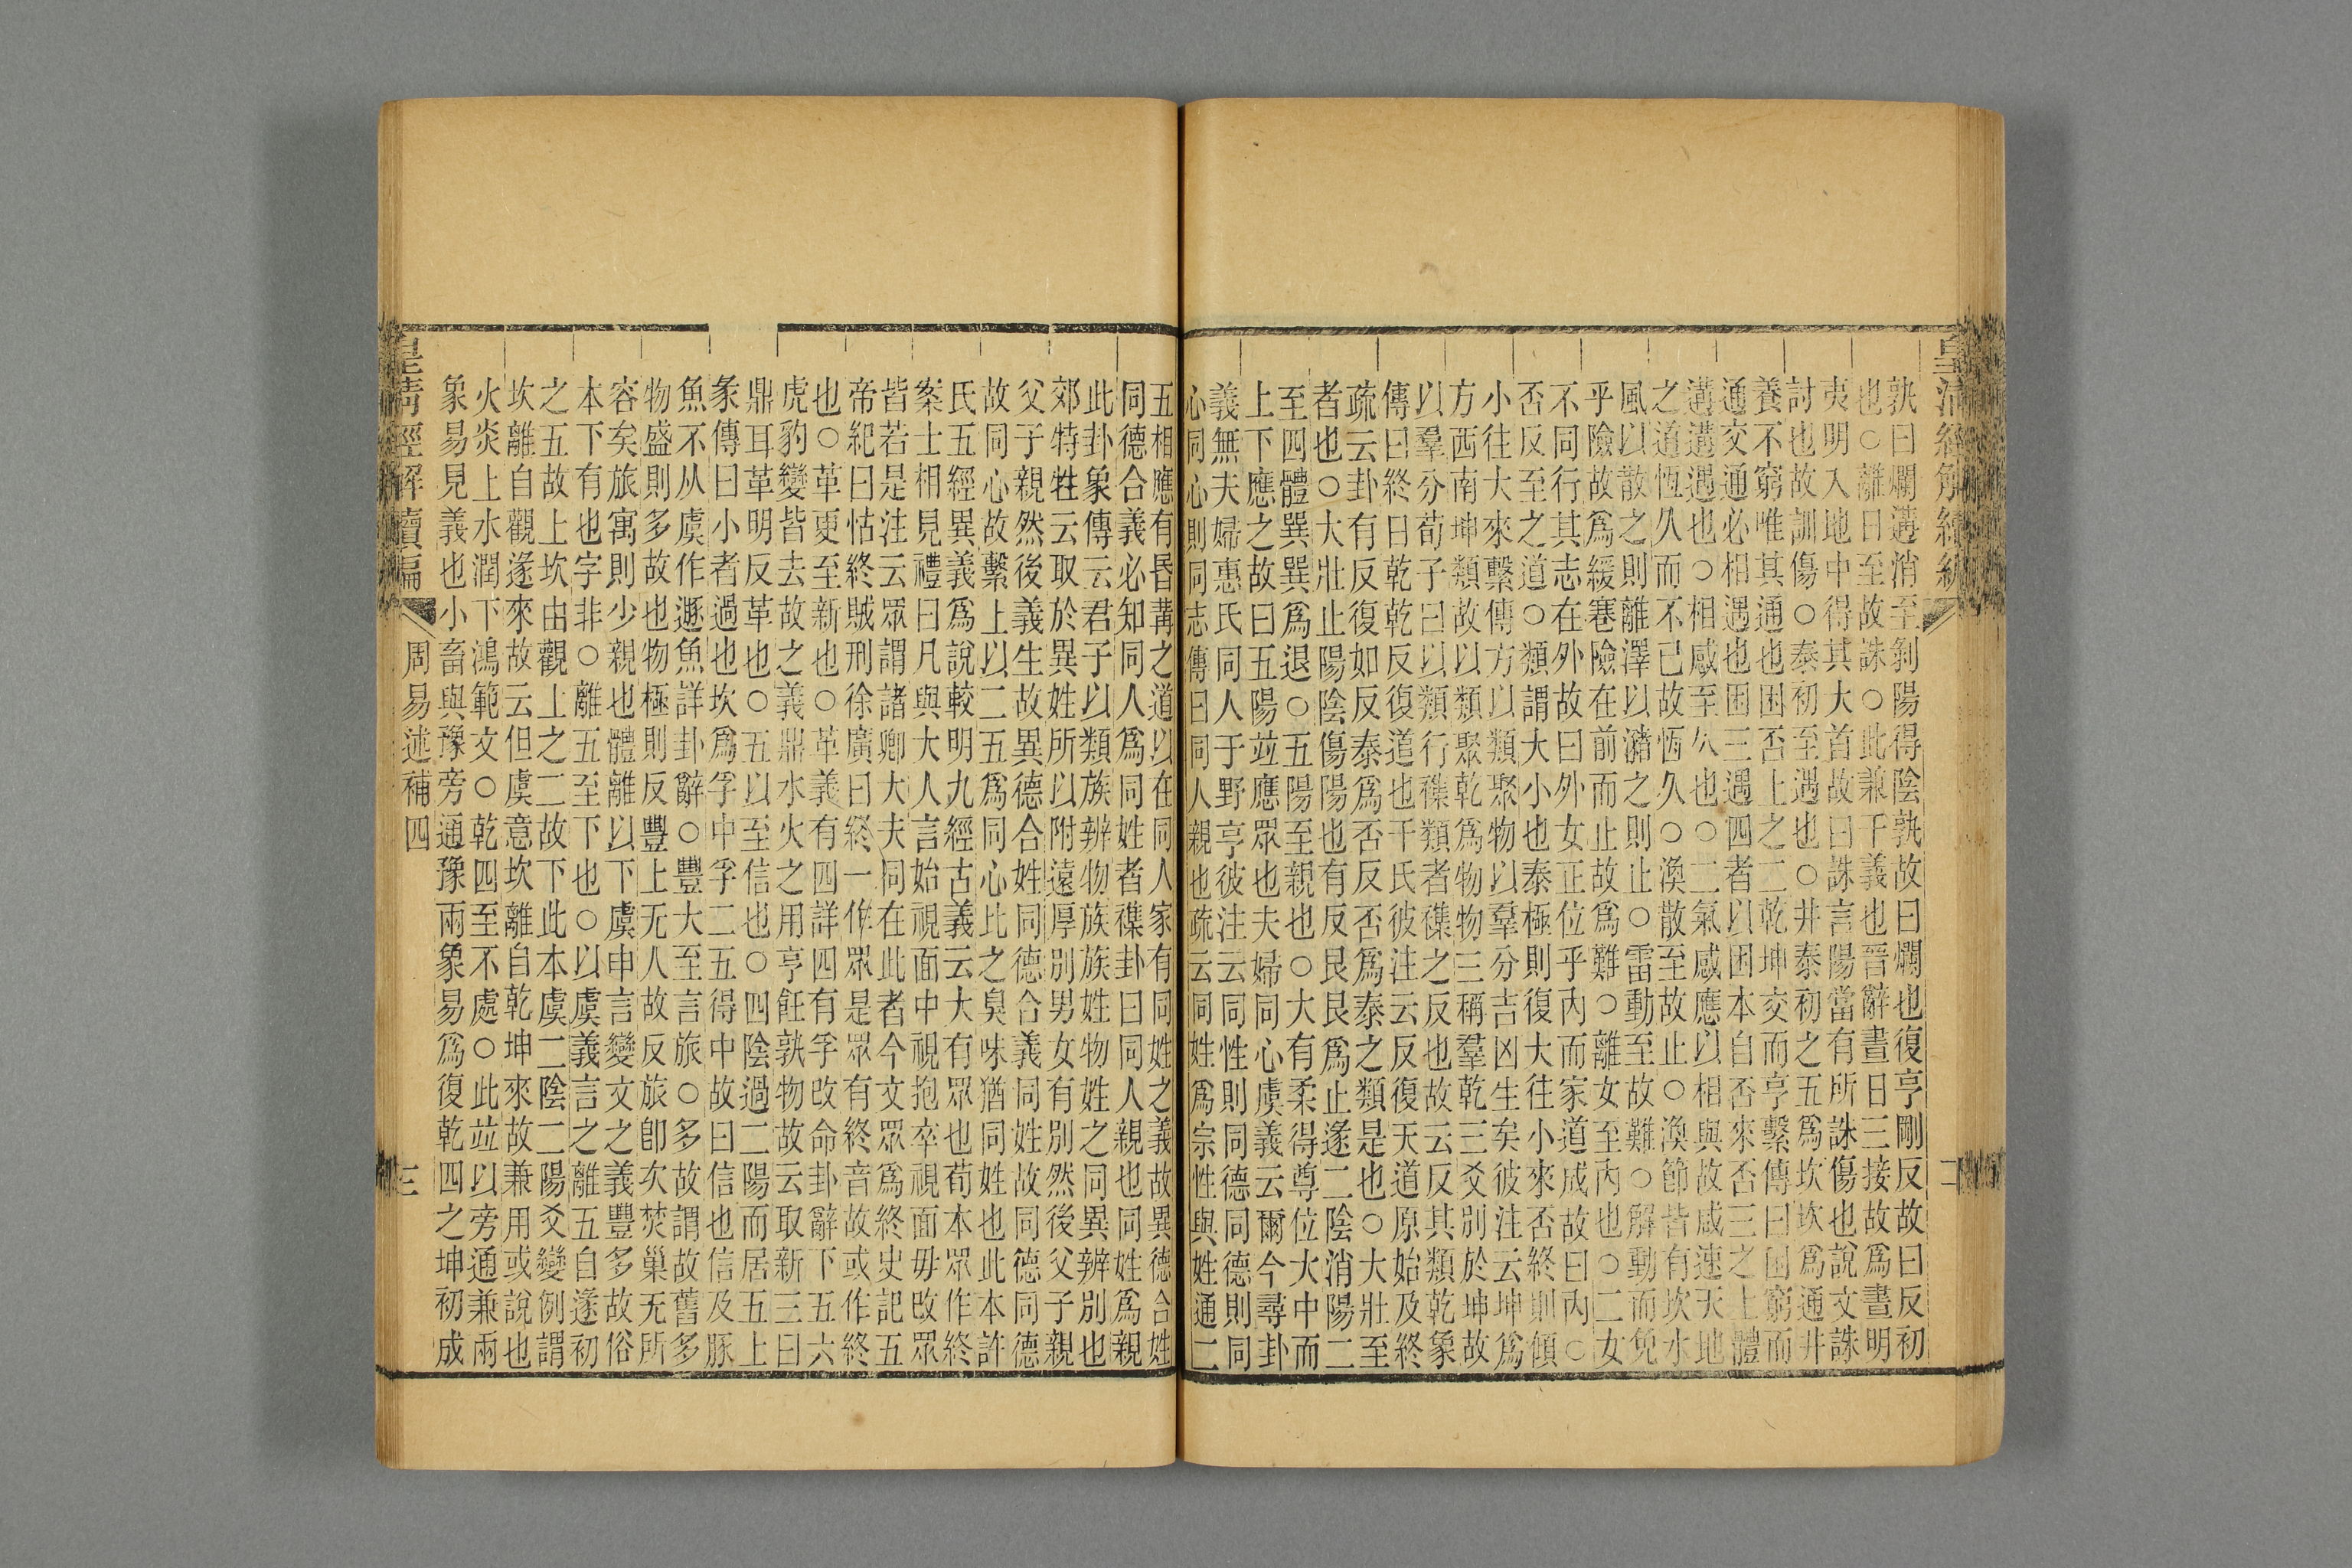 皇清經解續編
二
孰曰爛遘消至剝陽得陰孰故曰爛也復亨剛反故曰反初
也○離日至故誅○此兼干義也晉辭晝日三接故爲晝明
夷明入地中得其大首故曰誅言陽當有所誅傷也說文誅
討也故訓傷○泰初至遇也○井泰初之五爲坎坎爲通井
養不窮唯其通也困否上之二乾坤交而亨繫傳曰困窮而
通交通必相遇也困三遇四者以困本自否來否三之上體
遘遘遇也○相感至久也○二氣感應以相與故感速天地
之道恆久而不已故恆久○渙散至故止○渙節皆有坎水
風以散之則離澤以瀦之則止○雷動至故難○解動而免
乎險故爲緩蹇險在前而止故爲難○離女至內也○二女
不同行其志在外故曰外女正位乎內而家道成故曰內○
否反至之道○類謂大小也泰極則復大往小來否終則傾
小往大來繫傳方以類聚物以羣分吉凶生矣彼注云坤爲
方西南坤類故以類聚乾爲物物三稱羣乾三爻別於坤故
以羣分荀子曰以類行襍類者襍之反也故云反其類乾象
傳曰終日乾乾反復道也干氏彼注云反復天道原始及終
疏云卦有反復如反泰爲否反否爲泰之類是也○大壯至
者也○大壯止陽陰傷陽也有反艮艮爲止遂二陰消陽二
至四體巽巽爲退○五陽至親也○大有柔得尊位大中而
上下應之故曰五陽竝應眾也夫婦同心虞義云爾今尋卦
義無夫婦惠氏同人于野亨彼注云同性則同德同德則同
心同心則同志傳曰同人親也疏云同姓爲宗性與姓通二
五相應有昏冓之道以在同人家有同姓之義故異德合姓
同德合義必知同人爲同姓者襍卦曰同人親也同姓爲親
此卦象傳云君子以類族辨物族族姓物姓之同異辨別也
郊特牲云取於異姓所以附遠厚別男女有別然後父子親
父子親然後義生故異德合姓同德合義同姓故同德同德
故同心故繫上以二五爲同心比之臭味猶同姓也此本許
氏五經異義爲說較明九經古義云大有眾也荀本眾作終
案士相見禮曰凡與大人言始視面中視抱卒視面毋改眾
皆若是注云眾謂諸卿大夫同在此者今文眾爲終史記五
帝紀曰怙終賊刑徐廣曰終一作眾是眾有終音故或作終
也○革更至新也○革義有四詳四有孚改命卦辭下五六
虎豹變皆去故之義鼎水火之用亨飪孰物故云取新三曰
鼎耳革明反革也○五以至信也○四陰過二陽而居五上
彖傳曰小者過也坎爲孚中孚二五得中故曰信也信及豚
魚不从虞作遯魚詳卦辭○豐大至言旅○多故謂故舊多
物盛則多故也物極則反豐上无人故反旅卽次焚巢无所
容矣旅寓則少親也體離以下虞申言變文之義豐多故俗
本下有也字非○離五至下也○以虞義言之離五自遂初
之五故上坎由觀上之二故下此本虞二陰二陽爻變例謂
坎離自觀遂來故云但虞意坎離自乾坤來故兼用或說也
火炎上水潤下鴻範文○乾四至不處○此竝以旁通兼兩
象易見義也小畜與豫旁通豫兩象易爲復乾四之坤初成
皇清經解續編
周易述補四
三